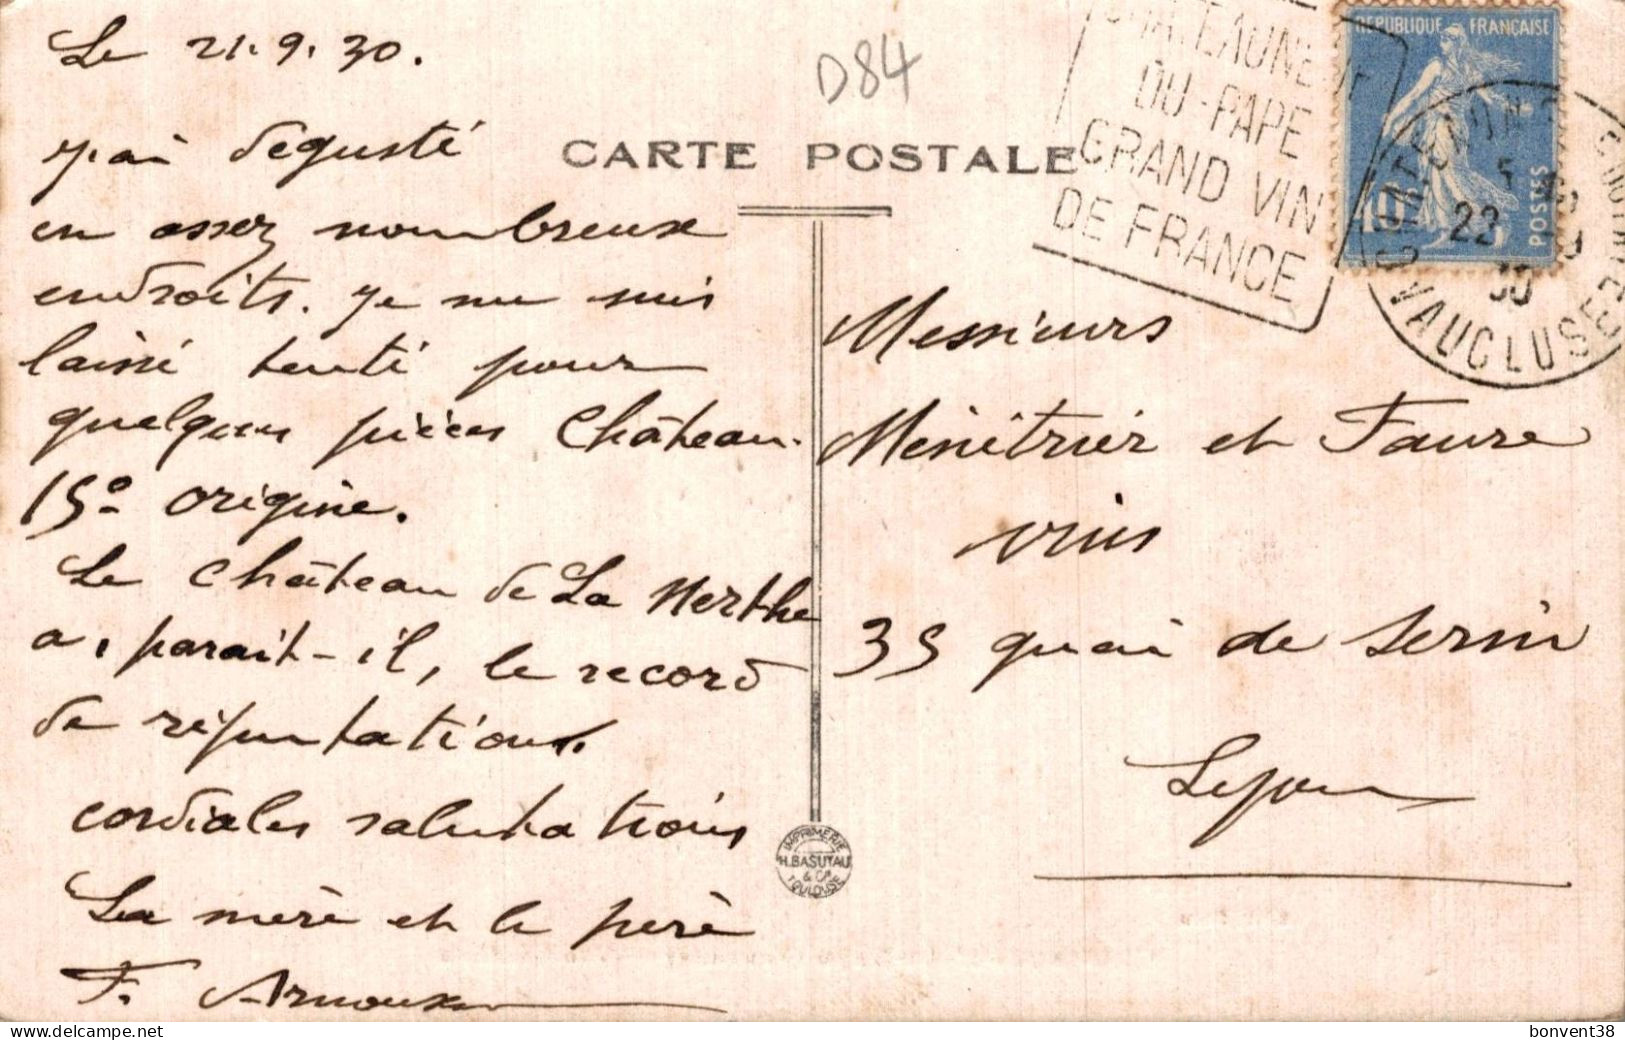 Le 21.9.30.
D84
J'ai degusté
en assez nombreuse
endroits. Je me suis
laissé tenté pour
quelques pièces Château-
15° origine.
Le Château de La Nerthe
a, parait-il, le record
de réputation.
cordiales salutations
La mère et le père
F. Arnoux
CARTE POSTALE
CHATEAUNEUF
DU-PAPE
GRAND VIN
DE FRANCE
REPUBLIQUE FRANÇAISE
POSTES
22
30
VAUCLUSE
Messieurs
Ménétrier et Faure
vins
35 quai de Serin
Lyon
IMPRIMERIE
H.BASUYAU
& Cie
TOULOUSE
bonvent38